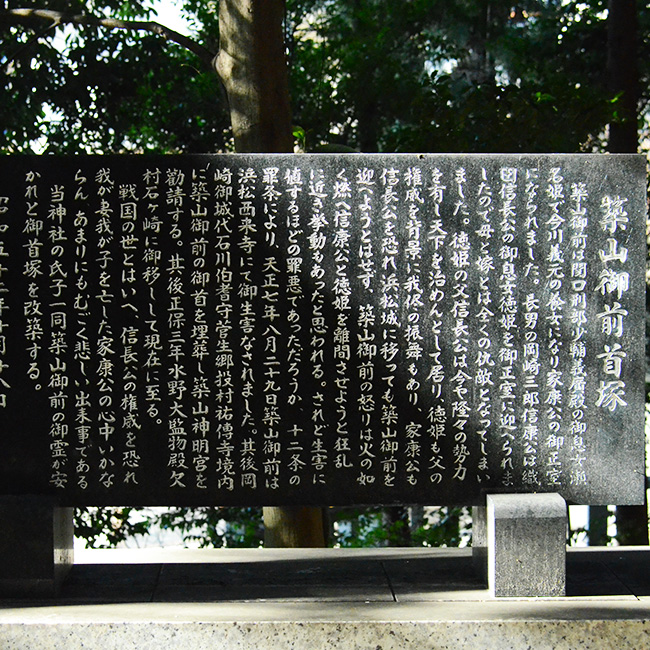 築山御前首塚
築山御前は関口刑部少輔義廣殿の御息女瀬
名姫で今川義元の養女になり家康公の御正室
になられました。長男の岡崎三郎信康公は織
田信長公の御息女徳姫を御正室に迎へられま
したので母と嫁とは全くの仇敵となってしまい
ました。徳姫の父信長公は今や隆々の勢力
を有し天下を治めんとして居り、徳姫も父の
権威を背景に我侭の振舞もあり、家康公も
信長公を恐れ浜松城に移っても築山御前を
迎へようとはせず、築山御前の怒りは火の如
く燃へ信康公と徳姫を離間させようと狂乱
に近き挙動もあったと思われる。されど生害に
値するほどの罪悪であっただろうか、十二条の
罪条により、天正七年八月二十九日築山御前は
浜松西来寺にて御生害なされました。其後岡
崎御城代石川伯耆守菅生郷投村祐傳寺境内
に築山御前の御首を埋葬し築山神明宮を
勧請する。其後正保三年水野大監物殿欠
村石ヶ崎に御移しして現在に至る。
戦国の世とはいへ、信長公の権威を恐れ
我が妻我が子を亡した家康公の心中いかな
らん、あまりにもむごく悲しい出来事である
当神社の氏子一同築山御前の御霊が安
かれと御首塚を改築する。
昭和五十二年